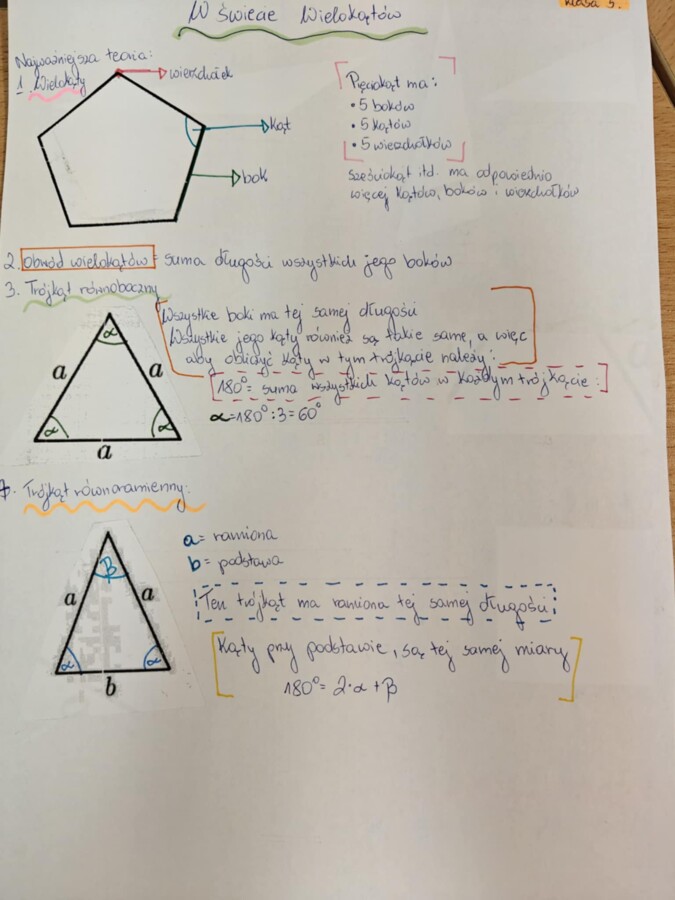 W świecie Wielokątów
klasa 5.
Najważniejsza teoria:
1. Wielokąty
wierzchołek
kąt
bok
Pięciokąt ma:
• 5 boków
• 5 kątów
• 5 wierzchołków
Sześciokąt itd. ma odpowiednio
więcej kątów, boków i wierzchołków
2. Obwód wielokątów = suma długości wszystkich jego boków
3. Trójkąt równoboczny
Wszystkie boki ma tej samej długości
Wszystkie jego kąty również są takie same, a więc
aby obliczyć kąty w tym trójkącie należy:
180° = suma wszystkich kątów w każdym trójkącie :
α = 180° : 3 = 60°
α
a a
α α
a
Trójkąt równoramienny:
a = ramiona
b = podstawa
β
a a
α α
b
Ten trójkąt ma ramiona tej samej długości
Kąty przy podstawie, są tej samej miary
180° = 2·α + β